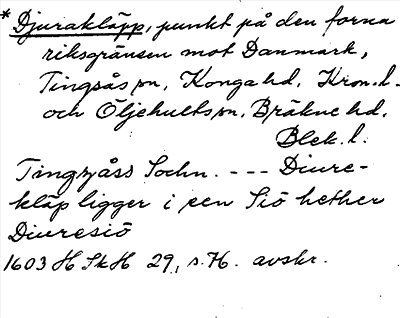 * Djurakläpp, punkt på den forna
riksgränsen mot Danmark,
Tingsås sn, Konga hd, Kron. l.
och Öljehults sn, Bräkne hd,
Blek. l.
Tingzåss Sochn. --- Diure-
kläp ligger i een Siö hether
Diuresiö
1603 H Sk H 29, s. 76. avskr.